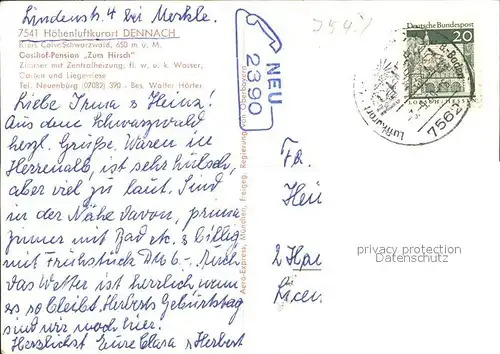 Lindenstr. 4 bei Merkle.
7541 Höhenluftkurort DENNACH
Kreis Calw/Schwarzwald, 650 m ü. M.
Gasthof-Pension „Zum Hirsch"
Zimmer mit Zentralheizung, fl. w. u. k. Wasser,
Garten und Liegewiese
Tel. Neuenbürg (07082) 390 - Bes. Walter Hörter
Liebe Irma & Heinz!
Aus dem Schwarzwald
herzl. Grüße. Waren in
Herrenalb, ist sehr hübsch,
aber viel zu laut. Sind
in der Nähe davon, prima
Zimmer mit Bad etc. & billig
mit Frühstück DM 6.-. Auch
das Wetter ist herrlich wenn
es so bleibt. Herberts Geburtstag
sind wir noch hier.
Herzlichst Eure Clasa & Herbert
NEU
2390
Aero-Express, München, Freigeg. Regierung von Oberbayern
Deutsche Bundespost
20
LORSCH/HESSEN
7562
Luftkurort
Fr.
Hei
2 Ha
privacy protection
Datenschutz